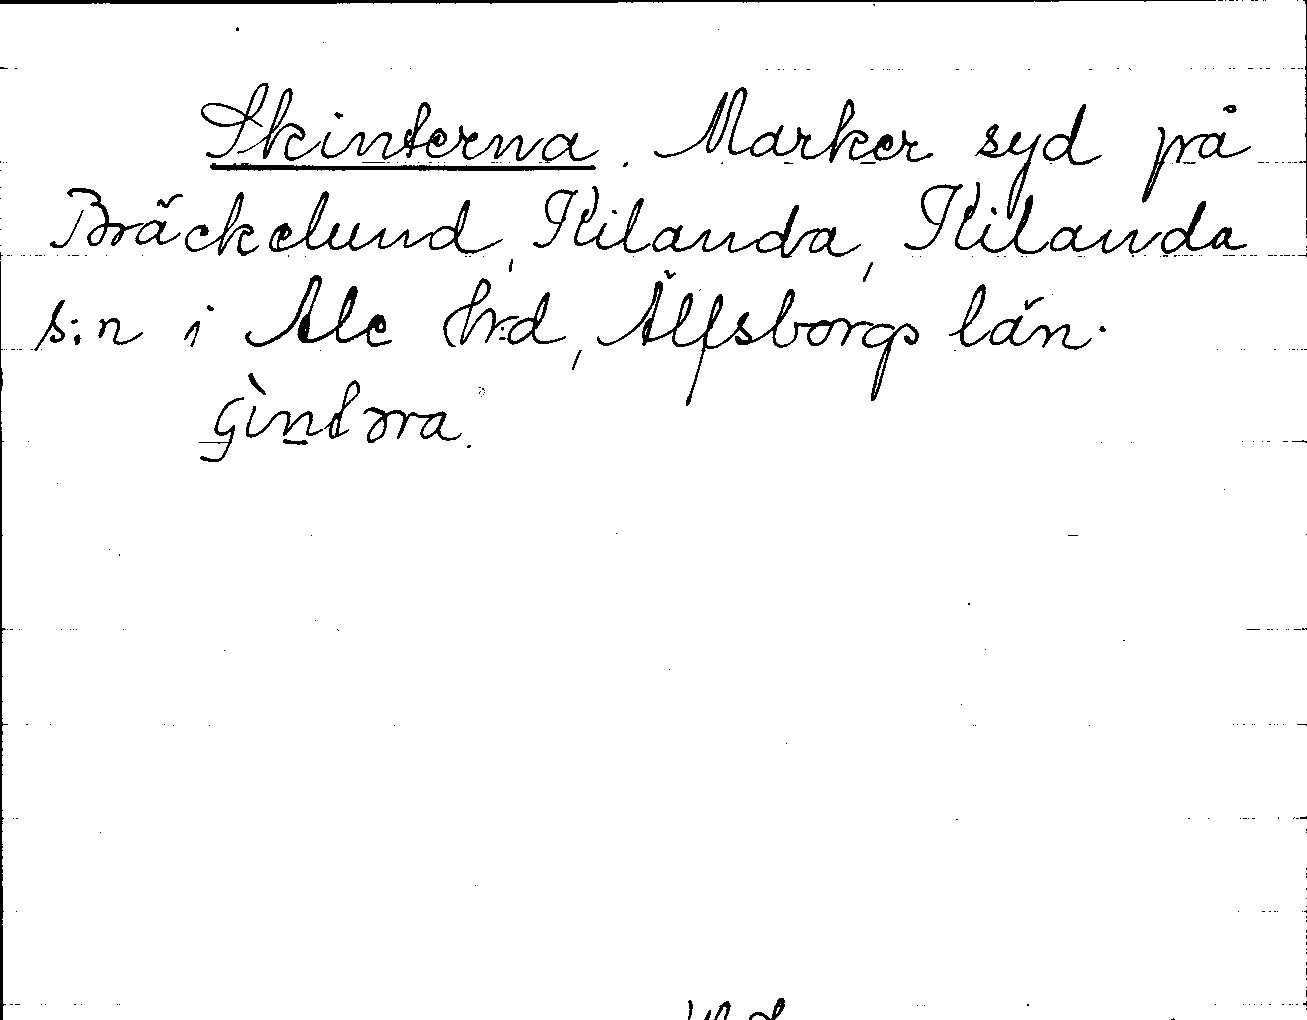 Skinterna. Marker syd på
Bräckelund, Kilanda, Kilanda
s:n i Ale hrd, Älfsborgs län.